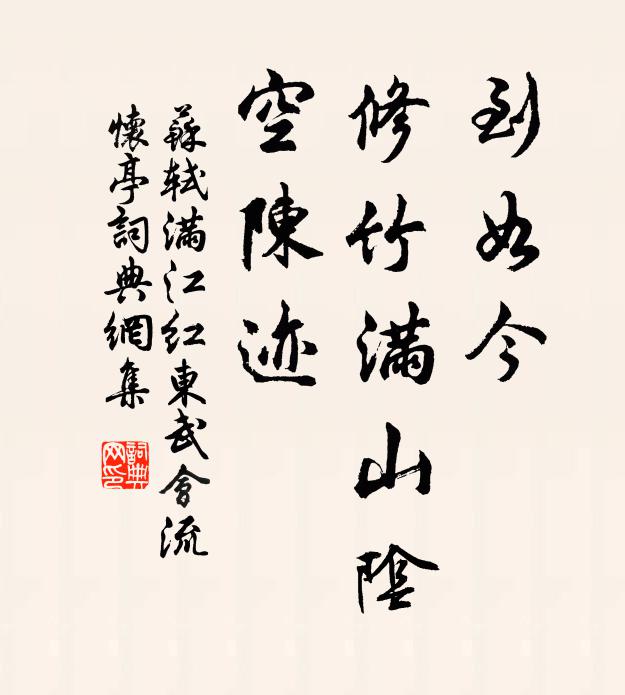 到如今
修竹满山陰
空陳迹
蘇軾满江紅東武會流
懷亭詞典網集
詞典
网印